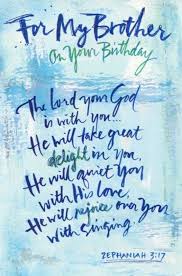 For My Brother
On Your Birthday
The Lord your God
is with you...
He will take great
delight in you,
He will quiet you
with His love,
He will rejoice over you
with singing.
ZEPHANIAH 3:17